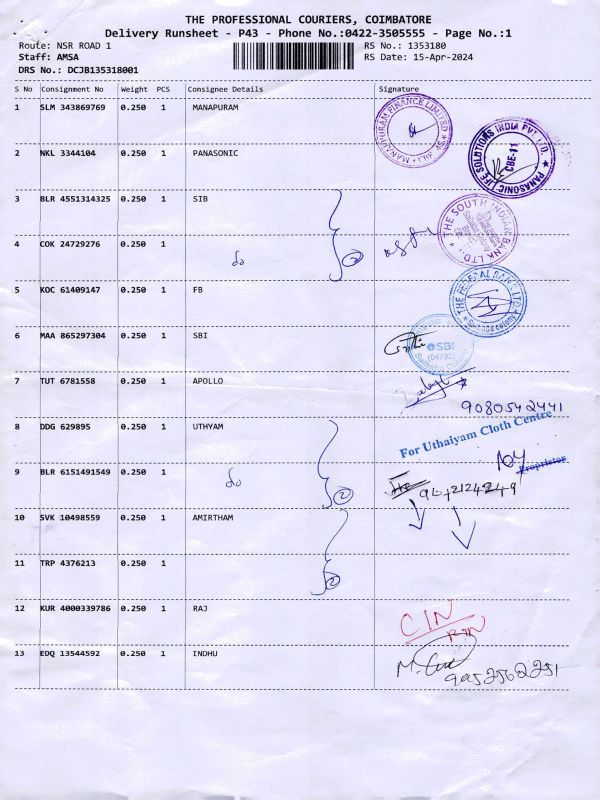 THE PROFESSIONAL COURIERS, COIMBATORE
Delivery Runsheet - P43 - Phone No.:0422-3505555 - Page No.:1
Route: NSR ROAD 1 RS No.: 1353180
Staff: AMSA RS Date: 15-Apr-2024
DRS No.: DCJB135318001
S No Consignment No Weight PCS Consignee Details Signature
1 SLM 343869769 0.250 1 MANAPURAM
MANAPURAM FINANCE LIMITED
2 NKL 3344104 0.250 1 PANASONIC
PANASONIC LIFE SOLUTIONS INDIA PVT. LTD.
CBE-11
3 BLR 4551314325 0.250 1 SIB
THE SOUTH INDIAN BANK LTD.
4 COK 24729276 0.250 1 do 2
5 KOC 61409147 0.250 1 FB
THE FEDERAL BANK LTD
6 MAA 865297304 0.250 1 SBI
SBI
(04792)
7 TUT 6781558 0.250 1 APOLLO
9080542441
8 DDG 629895 0.250 1 UTHYAM
For Uthaiyam Cloth Centre
Proprietor
9 BLR 6151491549 0.250 1 do 2
10 SVK 10498559 0.250 1 AMIRTHAM
11 TRP 4376213 0.250 1 2
12 KUR 4000339786 0.250 1 RAJ
13 EDQ 13544592 0.250 1 INDHU
9952562251